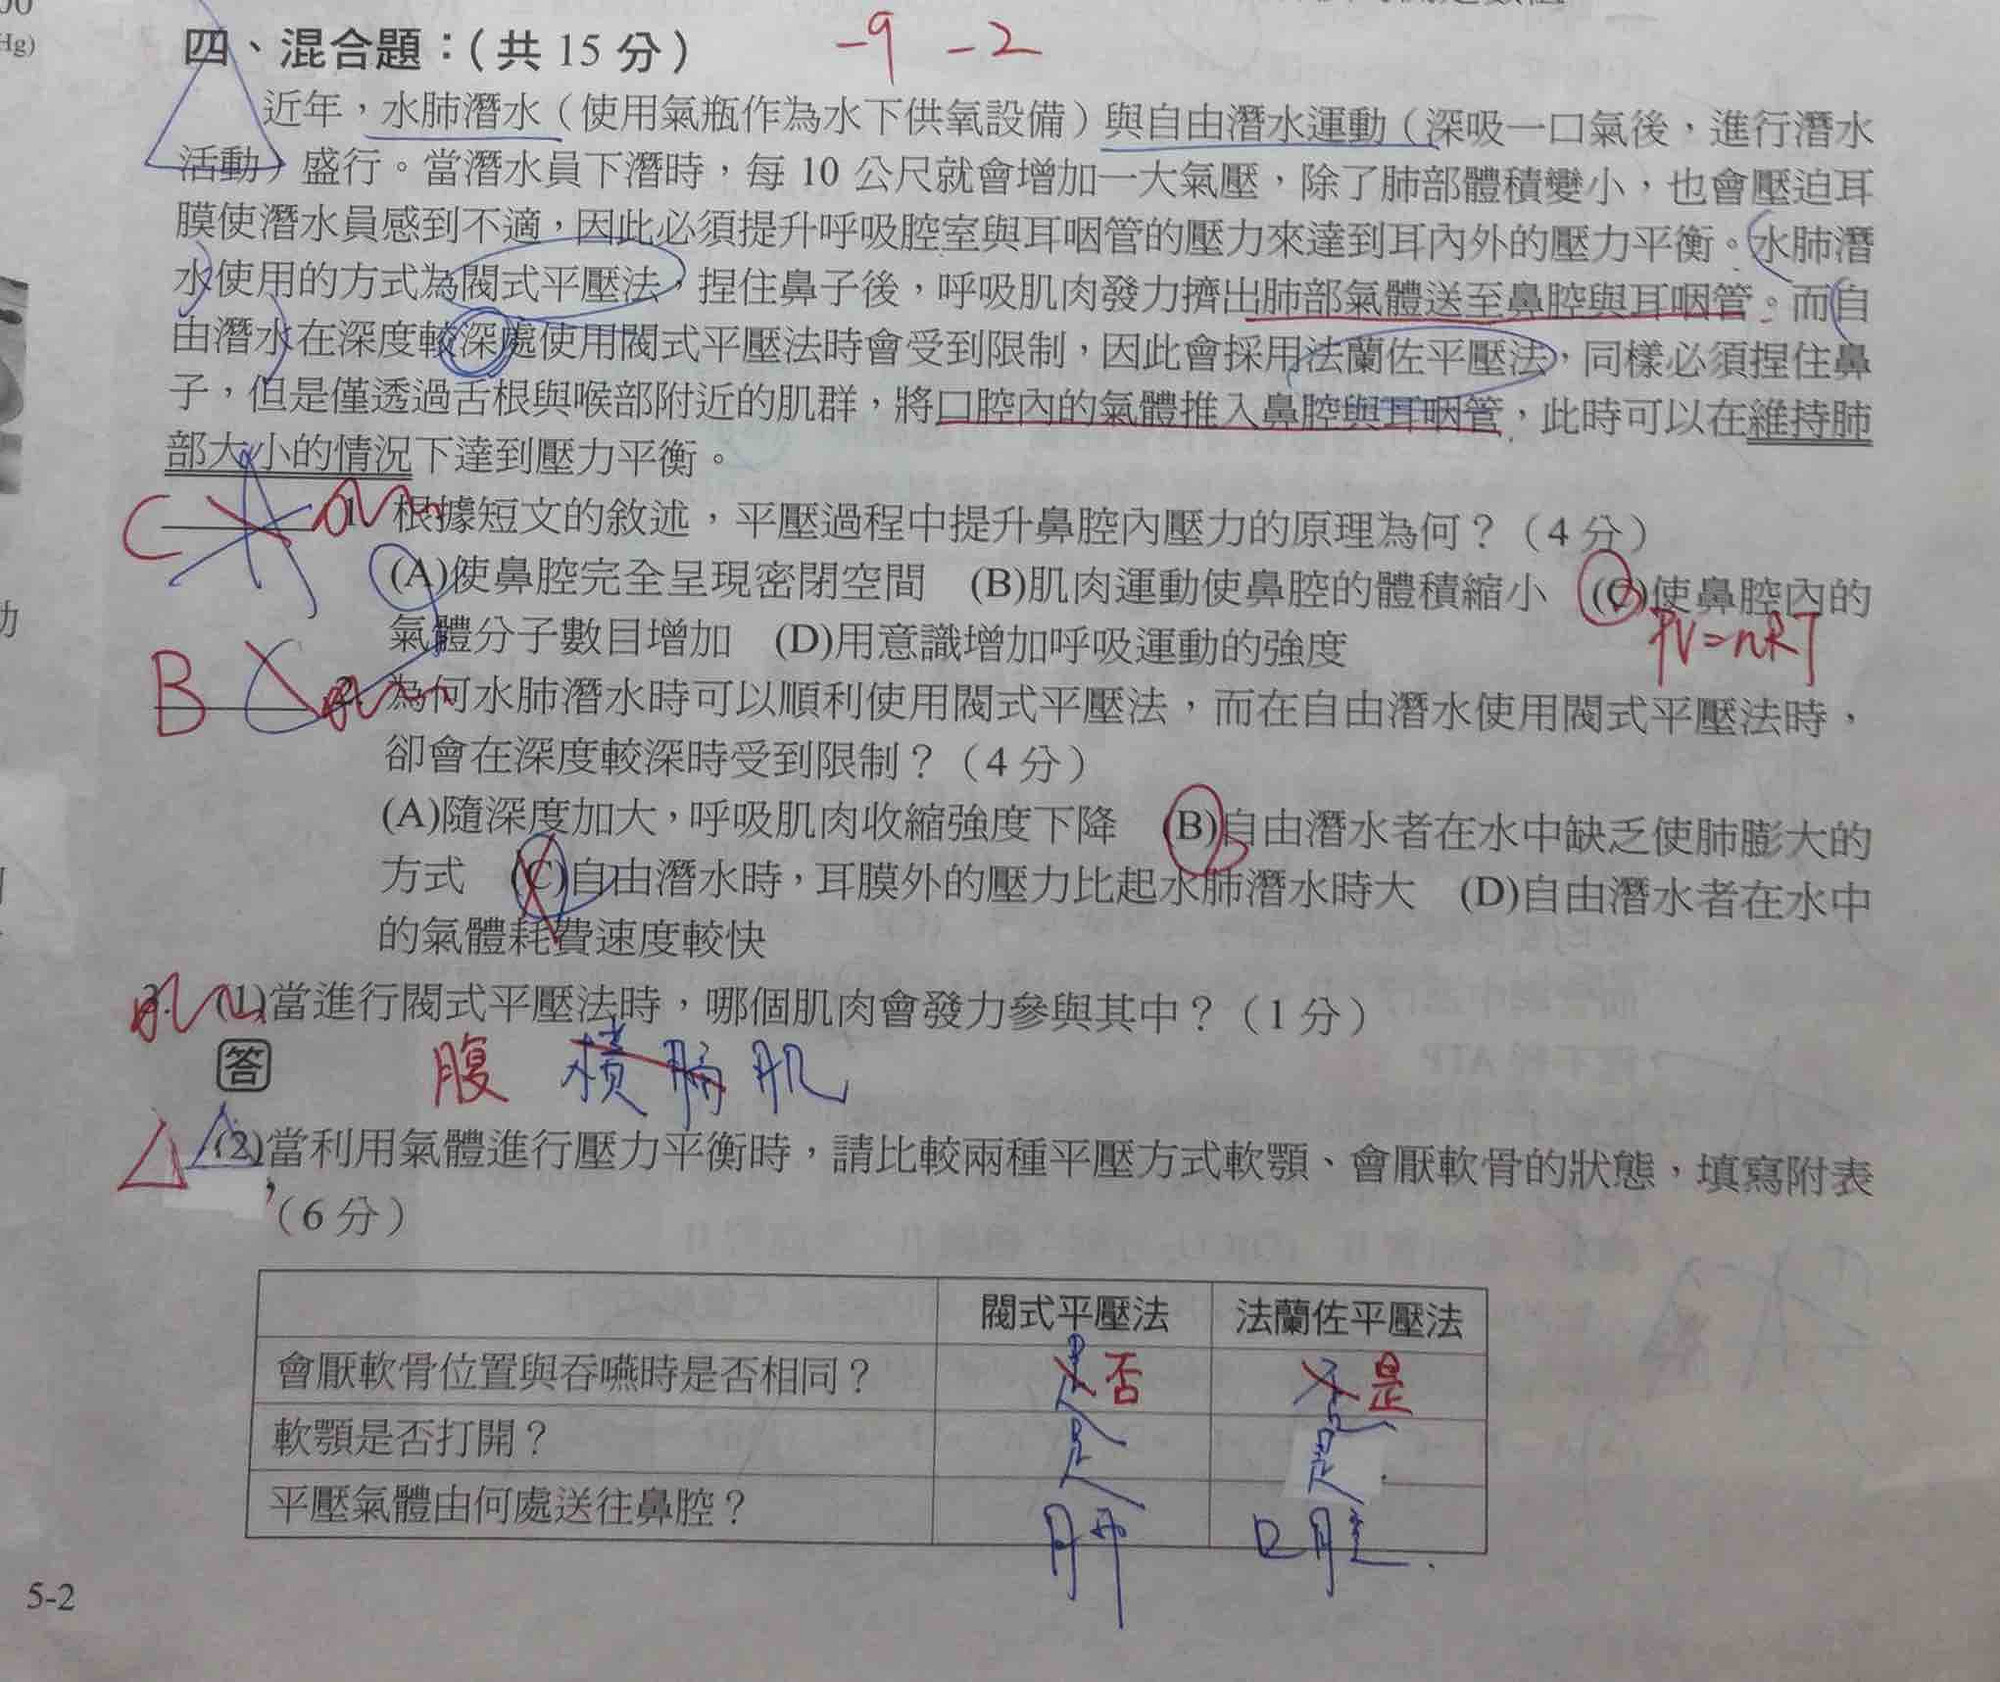 Hg)
四、混合題：（共 15 分） -9 -2
近年，水肺潛水（使用氣瓶作為水下供氧設備）與自由潛水運動（深吸一口氣後，進行潛水
活動）盛行。當潛水員下潛時，每 10 公尺就會增加一大氣壓，除了肺部體積變小，也會壓迫耳
膜使潛水員感到不適，因此必須提升呼吸腔室與耳咽管的壓力來達到耳內外的壓力平衡。水肺潛
水使用的方式為閥式平壓法，捏住鼻子後，呼吸肌肉發力擠出肺部氣體送至鼻腔與耳咽管。而自
由潛水在深度較深處使用閥式平壓法時會受到限制，因此會採用法蘭佐平壓法，同樣必須捏住鼻
子，但是僅透過舌根與喉部附近的肌群，將口腔內的氣體推入鼻腔與耳咽管，此時可以在維持肺
部大小的情況下達到壓力平衡。
C 1. 根據短文的敘述，平壓過程中提升鼻腔內壓力的原理為何？（4 分）
(A)使鼻腔完全呈現密閉空間 (B)肌肉運動使鼻腔的體積縮小 (C)使鼻腔內的
氣體分子數目增加 (D)用意識增加呼吸運動的強度
PV=nRT
B C 2. 為何水肺潛水時可以順利使用閥式平壓法，而在自由潛水使用閥式平壓法時，
卻會在深度較深時受到限制？（4 分）
(A)隨深度加大，呼吸肌肉收縮強度下降 (B)自由潛水者在水中缺乏使肺膨大的
方式 (C)自由潛水時，耳膜外的壓力比起水肺潛水時大 (D)自由潛水者在水中
的氣體耗費速度較快
3. (1)當進行閥式平壓法時，哪個肌肉會發力參與其中？（1 分）
答 腹 橫膈肌
(2)當利用氣體進行壓力平衡時，請比較兩種平壓方式軟顎、會厭軟骨的狀態，填寫附表
（6 分）
閥式平壓法 法蘭佐平壓法
會厭軟骨位置與吞嚥時是否相同？ 是 否 否 是
軟顎是否打開？ 是 是
平壓氣體由何處送往鼻腔？ 肺 口腔
5-2